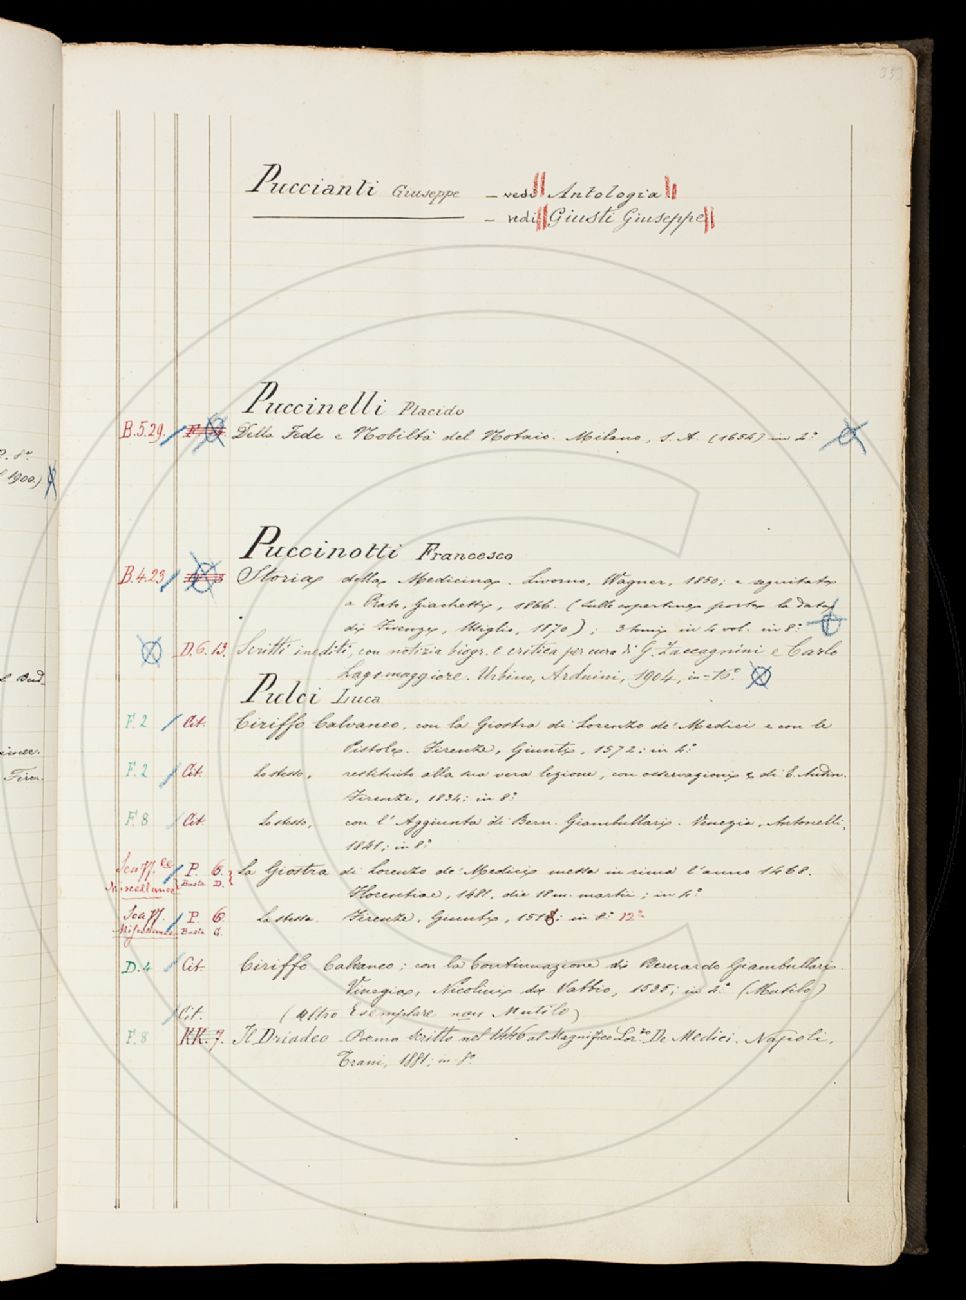 353
Puccianti Giuseppe – vedi Antologia
– vedi Giusti Giuseppe
Puccinelli Placido
B.5.29. Della Fede e Nobiltà del Notaio. Milano, s. A. (1654) in 4°
Puccinotti Francesco
B.4.23 Storia della Medicina. Livorno, Wagner, 1850; e seguitata
a Prato, Giachetti, 1866. (Sulla copertina porta la data
di Firenze, Miglio, 1870); 3 tomi in 4 vol. in 8°
D.6.13. Scritti inediti, con notizia biogr. e critica per cura di G. Zaccagnini e Carlo
Lagomaggiore. Urbino, Arduini, 1904, in-16°
Pulci Luca
F. 2 Cit. Ciriffo Calvaneo, con la Giostra di Lorenzo de' Medici e con le
Pistole. Firenze, Giunti, 1572; in 4°
F. 2 Cit. Lo stesso, restituito alla sua vera lezione, con osservazioni di E. Audin.
Firenze, 1834; in 8°
F. 8 Cit. Lo stesso, con l'Aggiunta di Bern. Giambullari. Venezia, Antonelli,
1841; in 8°
Miscellanea P. 6. Busta D. La Giostra di Lorenzo de' Medici messa in rima l'anno 1468.
Florentiae, 1481, die 18 m. martii; in 4°
P. 6 Busta La stessa. Firenze, Giunti, 1518; in 8° 12°
D. 4 Cit Ciriffo Calvaneo; con la Continuazione di Bernardo Giambullari.
Vinegia, Nicolini da Sabbio, 1535; in 4° (Mutilo)
Cit. (Altro Esemplare non Mutilo)
F. 8 KK. 7. Il Driadeo Poema scritto nel 1446 al Magnifico Lor.zo De Medici. Napoli,
Trani, 1881; in 8°